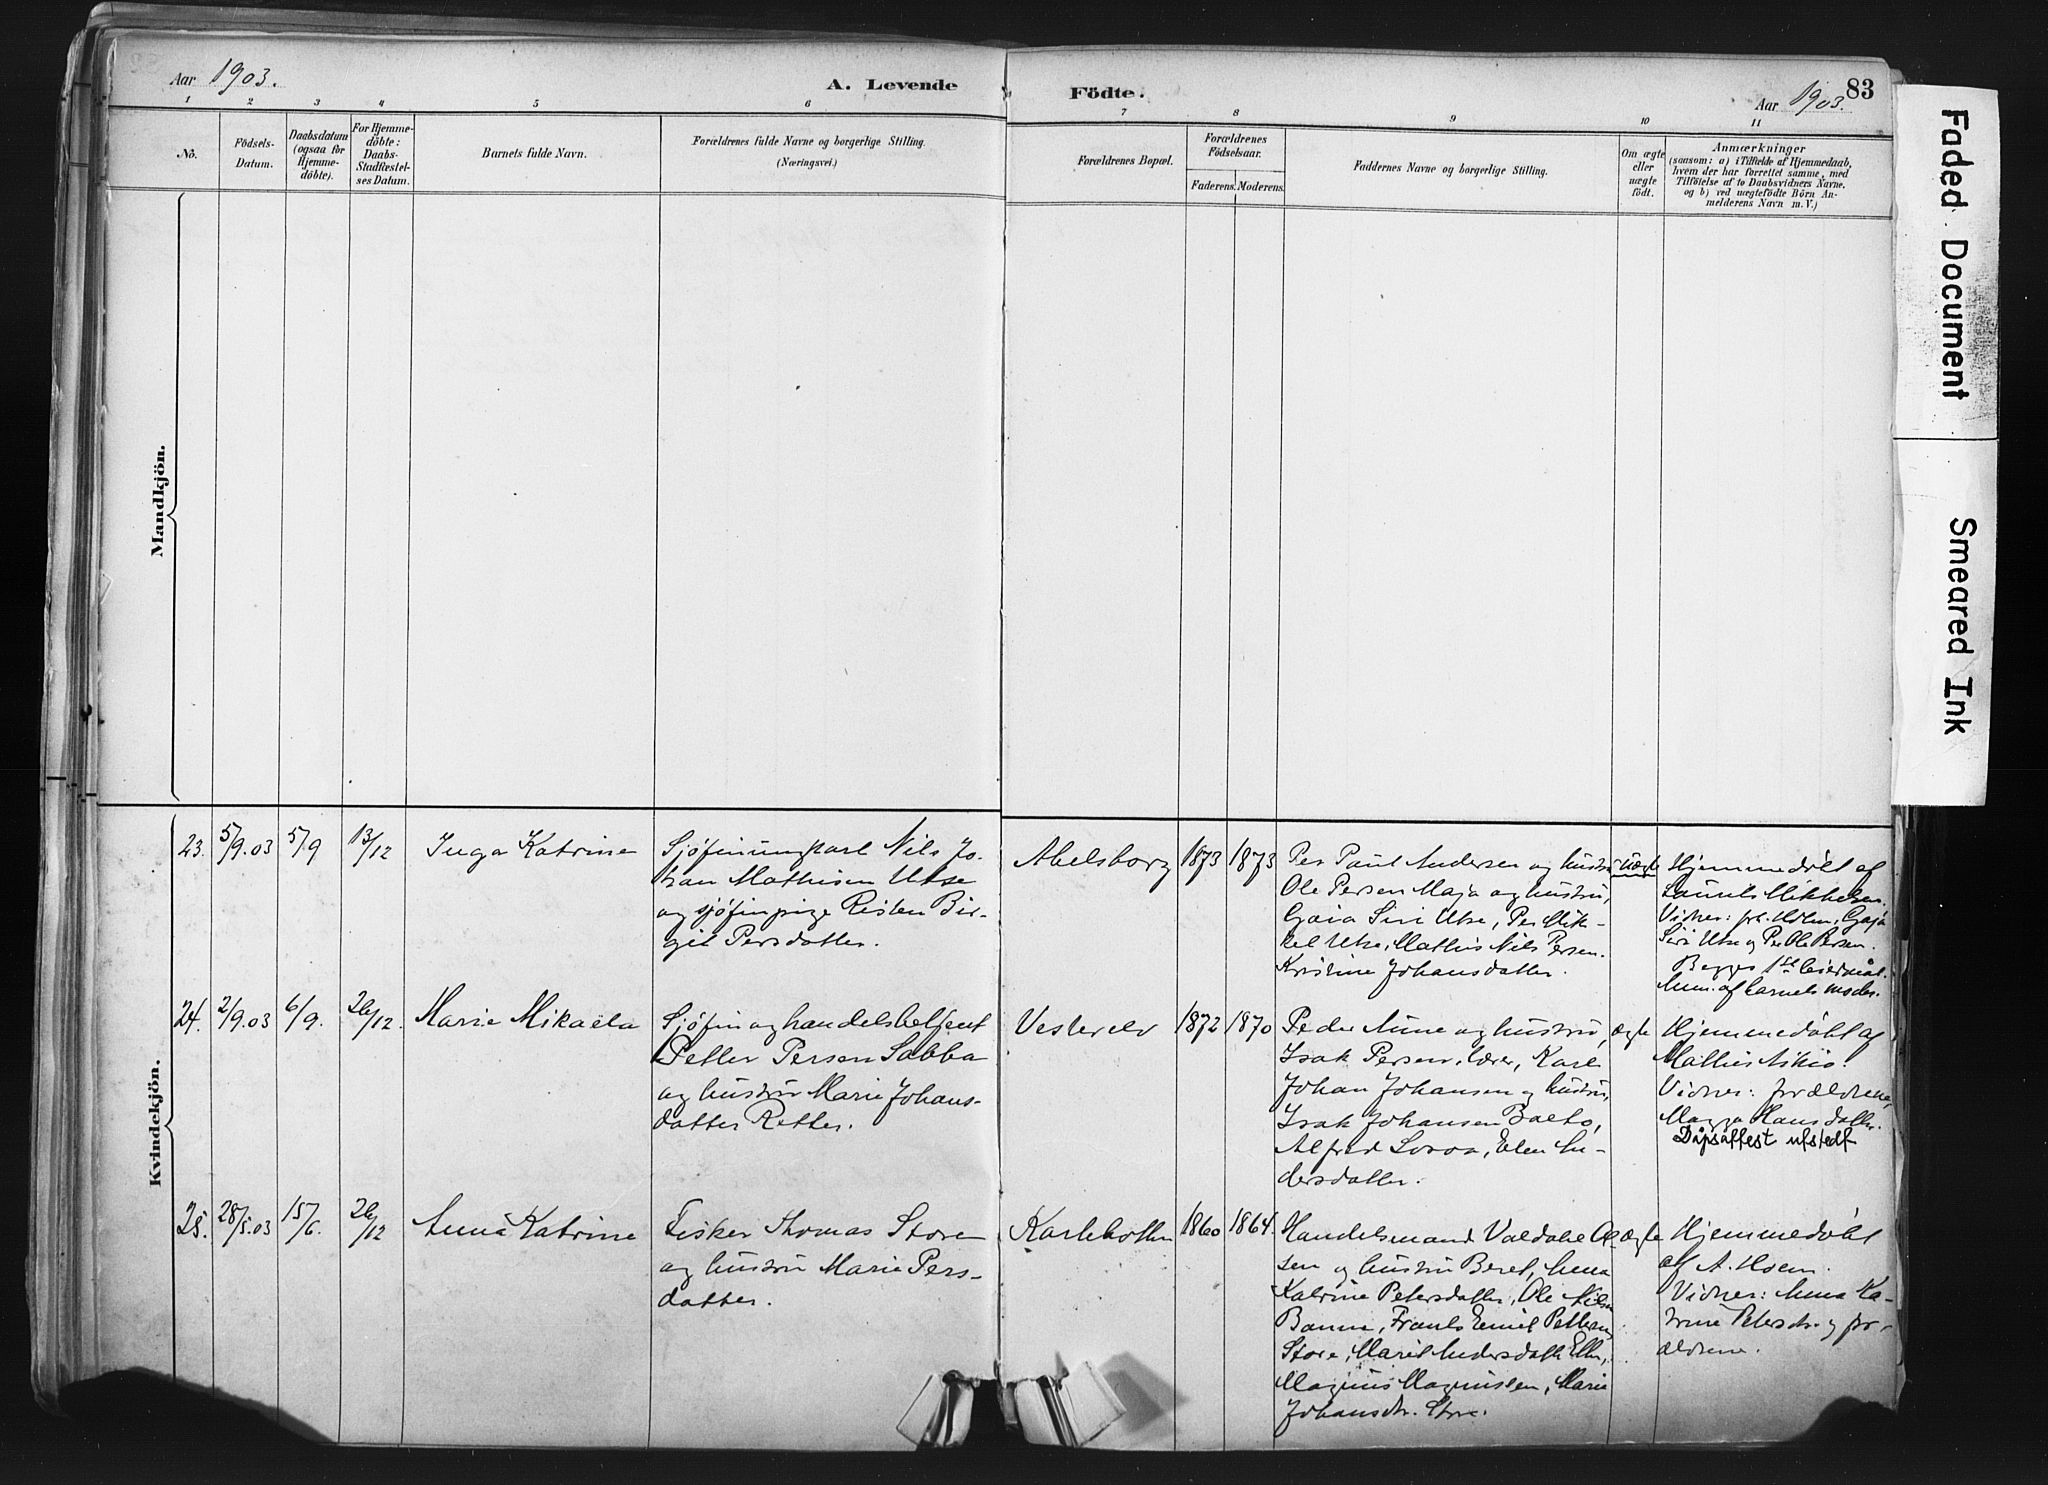 Aar 1903.
A. Levende
Födte.
Aar 1903.
83
1 2 3 4 5 6 7 8 9 10 11
No.
Födsels-
Datum.
Daabsdatum
(ogsaa for
Hjemme-
döbte).
For Hjemme-
döbte:
Daabs-
Stadfæstel-
ses Datum.
Barnets fulde Navn.
Forældrenes fulde Navne og borgerlige Stilling.
(Næringsvei.)
Forældrenes Bopæl.
Forældrenes
Födselsaar.
Faderens. Moderens.
Faddernes Navne og borgerlige Stilling.
Om ægte
eller
uægte
födt.
Anmærkninger
(saasom: a) i Tilfælde af Hjemmedaab,
hvem der har forrettet samme, med
Tilföielse af to Daabsvidners Navne.
og b) ved uægtefödte Börn An-
melderens Navn m. V.)
Mandkjön.
Kvindekjön.
23.
5/9.03
5/9
13/12
Inga Katrine
Sjöfinungkarl Nils Jo-
han Mathisen Utse
og sjöfinpige Risten Bir-
git Persdatter.
Abelsborg
1873
1873
Per Paul Andersen og hustru
Ole Persen Maja og hustru,
Gaia Siri Utse, Per Mik-
kel Utse, Mathis Nils Persen.
Kristine Johansdatter.
uægte
Hjemmedöbt af
Laurits Mikkelsen.
Vidner: frk. Holm, Gaja
Siri Utse og Per Ole Persen.
Begges 1ste leiermål.
Anm. af barnets moder.
24.
2/9.03
6/9.
26/12.
Marie Mikaela
Sjöfin og handelsbetjent
Petter Persen Sabba
og hustru Marie Johans-
datter Retter.
Vesterelv
1872
1870
Peder Aune og hustru,
Isak Persen, lærer, Karl
Johan Johansen og hustru,
Isak Johansen Balto,
Alfred Soroa, Elen An-
dersdatter.
ægte
Hjemmedöbt af
Mathis Aikio.
Vidner: forældrene,
Magga Hansdatter.
Dåpsattest utstedt
25.
28/5.03
15/6.
26/12
Anna Katrine
Fisker Thomas Store
og hustru Marie Pers-
datter.
Karlebotten
1860
1864.
Handelsmand Valdahl Ol-
sen og hustru Beret, Anna
Katrine Petersdatter, Ole Nilsen
Banne, Frants Emil Petterson
Store, Marit Andersdatter Eller,
Magnus Magnussen, Marie
Johansdtr. Store.
ægte
Hjemmedöbt
af A. Hoem.
Vidner: Anna Ka-
trine Petersdtr. og for-
ældrene.
Faded Document
Smeared Ink